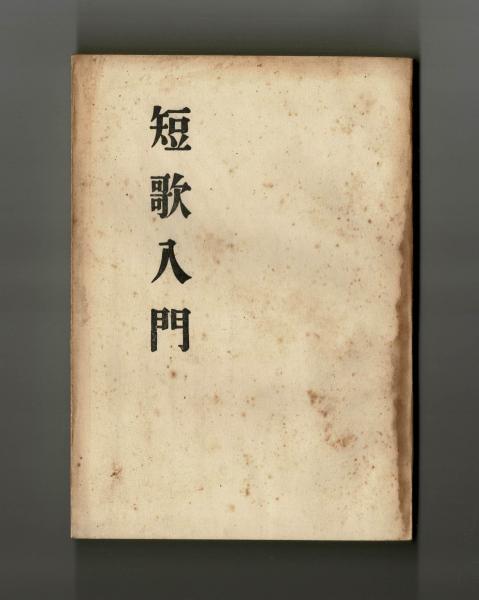 短歌入門